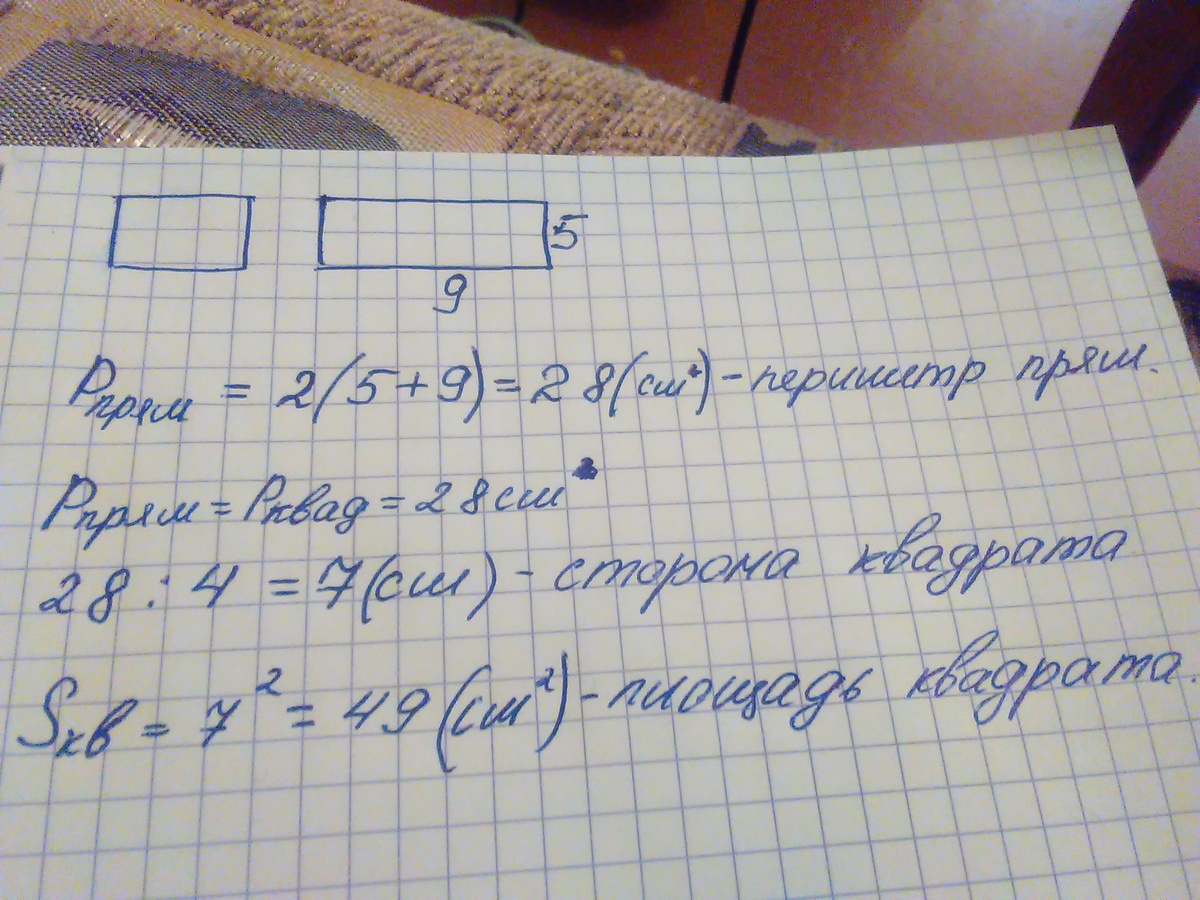 5
9
Pпрям = 2(5+9)=28(см²)-периметр прям.
Pпрям = Pквад = 28см
28 : 4 = 7(см) - сторона квадрата
Sкв = 7² = 49 (см²)-площадь квадрата.